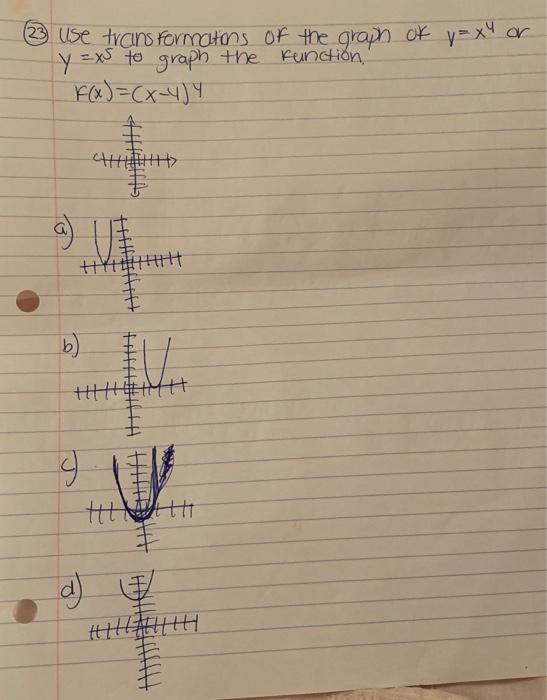 23 Use transformations of the graph of y=x⁴ or
y=x⁵ to graph the function.
F(x)=(x-4)⁴
a)
b)
c)
d)